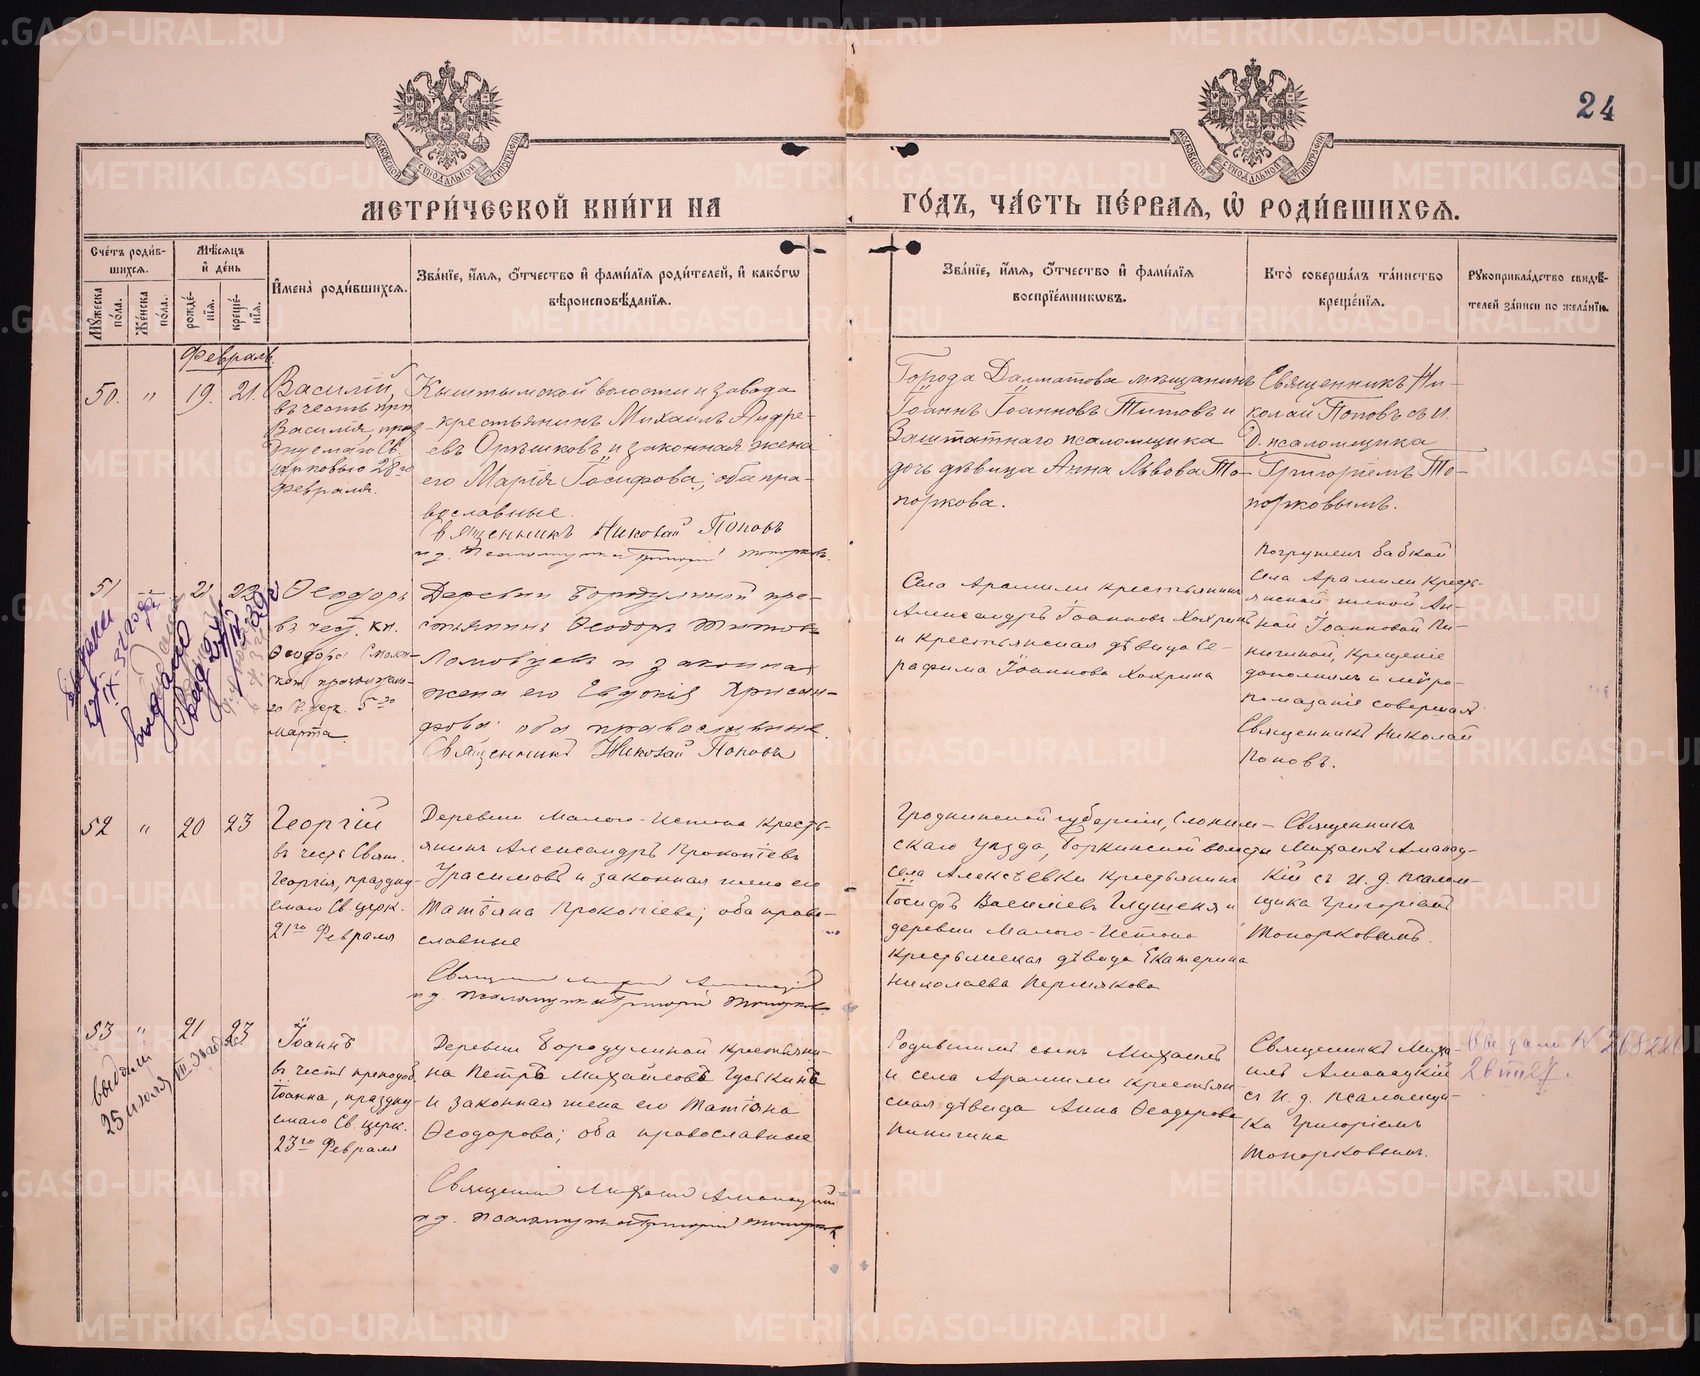 24
МОСКОВСКОЙ СѴНОДАЛЬНОЙ ТИПОГРАФІИ
МОСКОВСКОЙ СѴНОДАЛЬНОЙ ТИПОГРАФІИ
МЕТРИ́ЧЕСКОЙ КНИ́ГИ НА
ГО́ДЪ, ЧА́СТЬ ПЕ́РВАЯ, Ѡ҆ РОДИ́ВШИХСЯ.
Сче́тъ роди́в-
шихся.
Мꙋжеска по́ла.
Же́нска по́ла.
Мѣ́сяцъ
и҆ де́нь
рожде́-
нїя.
креще́-
нїя.
И҆мена̀ роди́вшихся.
Зва́нїе, и҆́мя, ѻ҆́тчество и҆ фами́лїя роди́телей, и҆ како́гѡ
вѣроисповѣ́данїя.
Зва́нїе, и҆́мя, ѻ҆́тчество и҆ фами́лїя
воспрїе́мникѡвъ.
Кто̀ соверша́лъ та́инство
креще́нїя.
Рꙋкоприкла́дство свидѣ́-
телей за́писи по жела́нїю.
Февраль.
50. " 19. 21.
Василій,
въ честь прп.
Василія, праз-
днуемаго Св.
Церковью 28го
февраля.
Кыштымской волости и завода
крестьянинъ Михаилъ Андре-
евъ Орѣшковъ, и законная жена
его Марія Іосифова, оба пра-
вославные.
Священникъ Николай Поповъ
и д. Псаломщика Григорій Топорковъ.
Города Далматова мѣщанинъ
Іоаннъ Іоанновъ Титовъ и
Заштатнаго псаломщика
дочь дѣвица Анна Львова То-
поркова.
Священникъ Ни-
колай Поповъ съ и.
д. псаломщика
Григоріемъ То-
порковымъ.
51 " 21 22
Ѳеодоръ
въ чест. кн.
Ѳеодора Смолен-
го Св. церк. 5го
марта
Деревни Бородулиной кре-
стьянинъ Ѳеодоръ Титовъ
Ломовцевъ и законная
жена его Евдокія Хрисан-
фова оба православные.
Священникъ Николай Поповъ
Села Арамили крестьянинъ
Александръ Іоанновъ Хохринъ
и крестьянская дѣвица Се-
рафима Іоаннова Хохрина
Погруженъ бабкой
села Арамили кресть-
янской женой Ан-
ной Іоанновой Пи-
нигиной, крещеніе
дополнялъ и мѵро-
помазаніе совершалъ
Священникъ Николай
Поповъ.
52 " 20 23
Георгій
въ честь Свят.
Георгія, праздну-
емаго Св. церк.
21го Февраля
Деревни Малого-Истока кресть-
янинъ Александръ Прокопіевъ
Урасимовъ и законная жена его
Татьяна Прокопіева; оба право-
славные
Священникъ Михаилъ Аманацкій
и д. псаломщика Григорій Топорковъ
Гродненской губерніи, Слоним-
скаго уѣзда, Боркинской волости
села Алексѣевки крестьянинъ
Іосифъ Василіевъ Глушеня и
деревни Малого-Истока
крестьянская дѣвица Екатерина
Николаева Пермякова
Священникъ
Михаилъ Аманац-
кій съ и. д. псалом-
щика Григоріемъ
Топорковымъ.
53 " 21 23
Іоаннъ
въ честь преподоб.
Іоанна, праздну-
емаго Св. церк.
23го Февраля
Деревни Бородулиной крестьяни-
на Петръ Михайловъ Гуськинъ
и законная жена его Татіана
Ѳеодорова; оба православные
Священникъ Михаилъ Аманацкій
и д. псаломщика Григорій Топорковъ
Родившаго сынъ Михаилъ
и села Арамили крестьян-
ская дѣвица Анна Ѳеодорова
Пинигина
Священникъ Миха-
илъ Аманацкій
съ и. д. псаломщи-
ка Григоріемъ
Топорковымъ.
выданы
25 июля